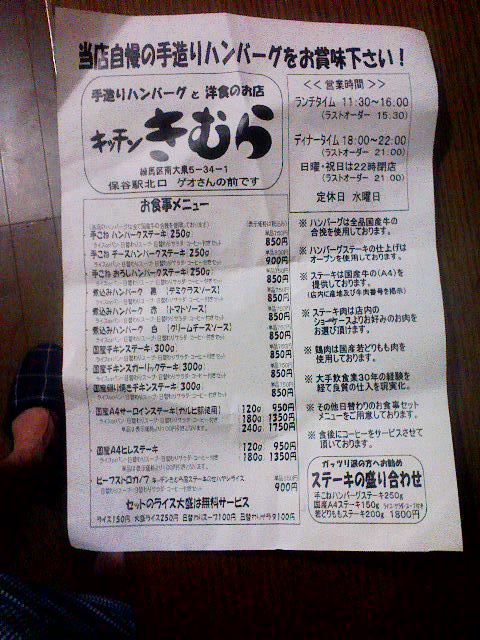 当店自慢の手造りハンバーグをお賞味下さい！
手造りハンバーグと洋食のお店
キッチン きむら
練馬区南大泉5-34-1
保谷駅北口 ゲオさんの前です
<< 営業時間 >>
ランチタイム 11:30～16:00
(ラストオーダー 15:30)
ディナータイム 18:00～22:00
(ラストオーダー 21:00)
日曜・祝日は22時閉店
(ラストオーダー 21:00)
定休日 水曜日
お食事メニュー
手こね ハンバーグステーキ 250g 850円
手こね チーズハンバーグステーキ 250g 900円
手こね おろしハンバーグステーキ 250g 850円
煮込みハンバーグ 黒 [デミグラスソース] 850円
煮込みハンバーグ 赤 [トマトソース] 850円
煮込みハンバーグ 白 [クリームチーズソース] 850円
国産チキンステーキ(300g) 850円
国産チキンガーリックステーキ(300g) 850円
国産照り焼きチキンステーキ(300g) 850円
国産A4サーロインステーキ[カルビ部使用]
120g 950円
180g 1350円
240g 1750円
国産A4ヒレステーキ
120g 950円
180g 1350円
ビーフストロガノフ 900円
セットのライス大盛は無料サービス
ライス150円 大盛ライス250円 日替わりスープ100円 日替わりサラダ100円
※ ハンバーグは全品国産牛の
合挽を使用しております。
※ ハンバーグステーキの仕上げは
オーブンを使用しております。
※ ステーキは国産牛の(A4)を
提供しております。
(店内に産地及び牛肉番号を掲示)
※ ステーキ肉は店内の
ショーケースよりお好みのお肉を
お選び頂けます。
※ 鶏肉は国産若どりもも肉を
使用しております。
※ 大手飲食業30年の経験を
経て良質の仕入を現実化。
※ その他日替わりのお食事セット
メニューをご用意しております。
※ 食後にコーヒーをサービスさせて
頂いております。
ガッツリ派の方へお勧め
ステーキの盛り合わせ
手こねハンバーグステーキ250g
国産A4ステーキ150g
若どりももステーキ200g 1800円